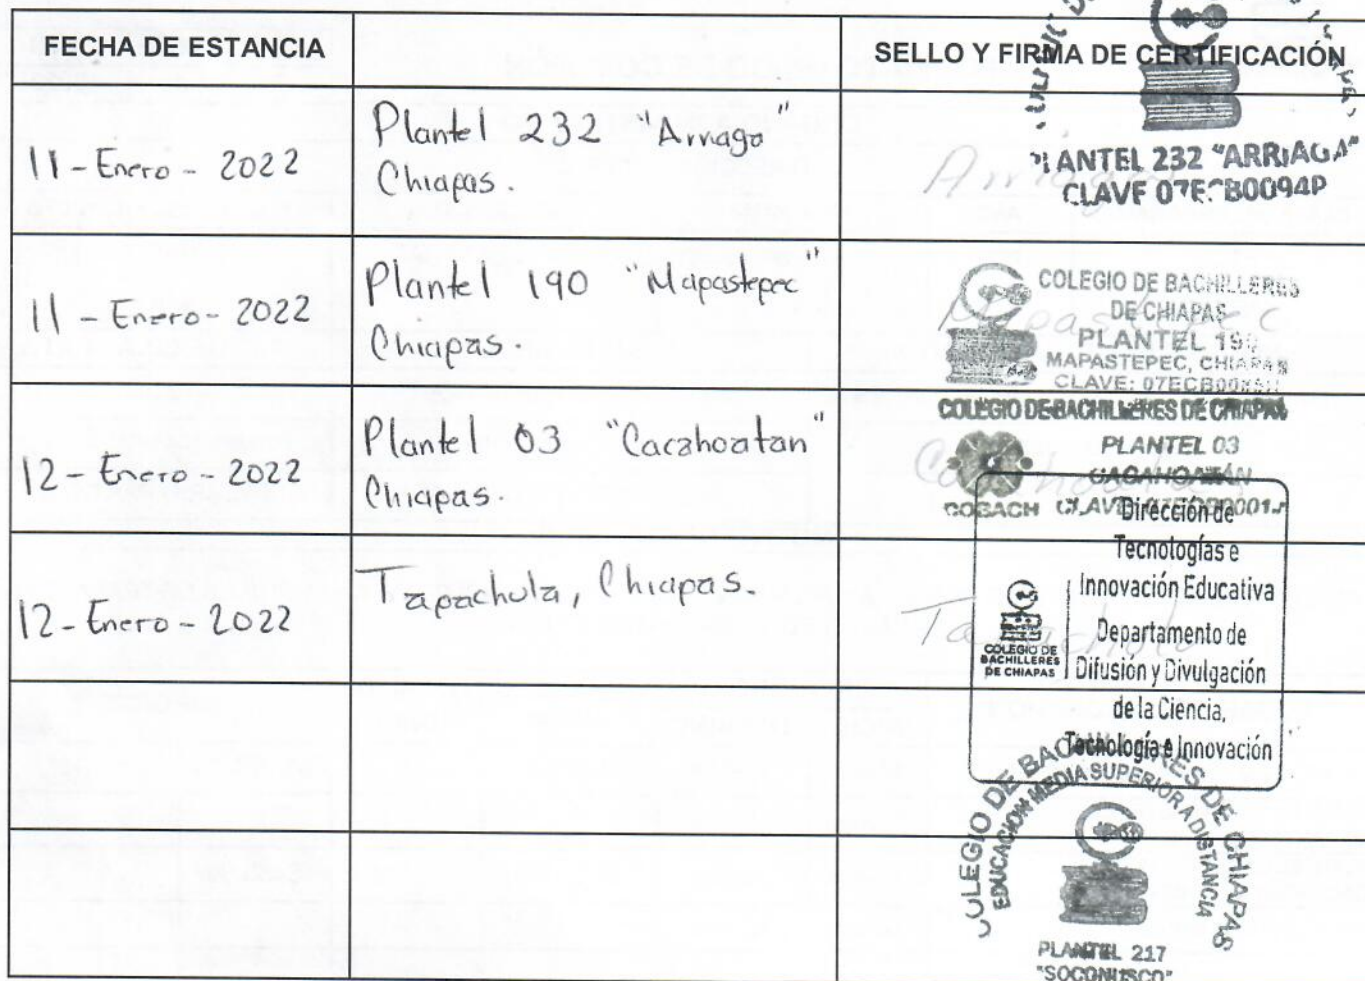 FECHA DE ESTANCIA
SELLO Y FIRMA DE CERTIFICACIÓN
11-Enero-2022
Plantel 232 "Arriaga"
Chiapas.
Arriaga
PLANTEL 232 "ARRIAGA"
CLAVE 07ECB0094P
11-Enero-2022
Plantel 190 "Mapastepec"
Chiapas.
Mapastepec
COLEGIO DE BACHILLERES
DE CHIAPAS
PLANTEL 190
MAPASTEPEC, CHIAPAS
CLAVE:
12-Enero-2022
Plantel 03 "Cacahoatan"
Chiapas.
Cacahoatan
COLEGIO DE BACHILLERES DE CHIAPAS
PLANTEL 03
CACAHOATÁN
COBACH
12-Enero-2022
Tapachula, Chiapas.
Tapachula
Dirección de
Tecnologías e
Innovación Educativa
Departamento de
Difusión y Divulgación
de la Ciencia,
Tecnología e Innovación
COLEGIO DE
BACHILLERES
DE CHIAPAS
COLEGIO DE BACHILLERES DE CHIAPAS
EDUCACION MEDIA SUPERIOR A DISTANCIA
PLANTEL 217
"SOCONUSCO"